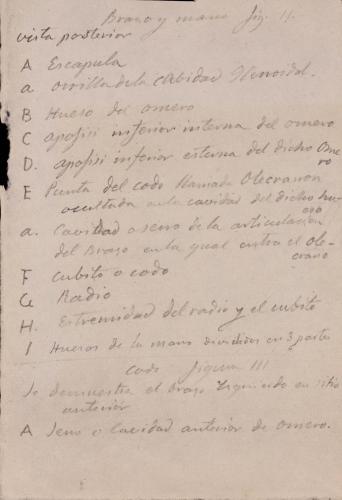 Braso y mano fig. 11.
vista posterior
A Escapula
a orrilla de la cabidad Glenoidal.
B Hueso del omero
C apofisi inferior interna del omero
D. apofisi inferior esterna del dicho Ome
ro
E Punta del codo llamada Olecranon
ocultada en la cavidad del dicho hue
so
a. Cavidad o seno de la articulacion
del Braso en la qual entra el Ole
crano
F Cubito o codo
G Radio
H. Estremidad del radio y el cubito
I Huesos de la mano divididos en 3 partes
codo figura III
demuestra el braso Izquierdo en sitio
anterior
A seno o Cavidad anterior de omero.